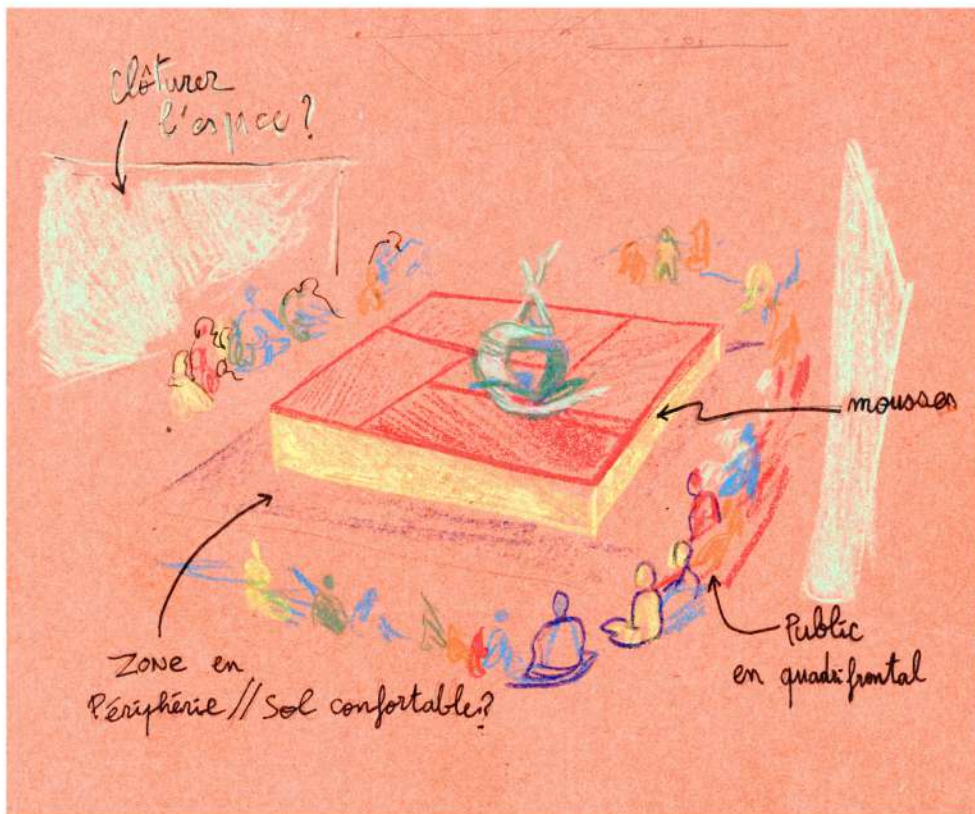 clôturer
l'espace?
mousses
Public
en quadrifrontal
ZONE en
Périphérie // Sol confortable?